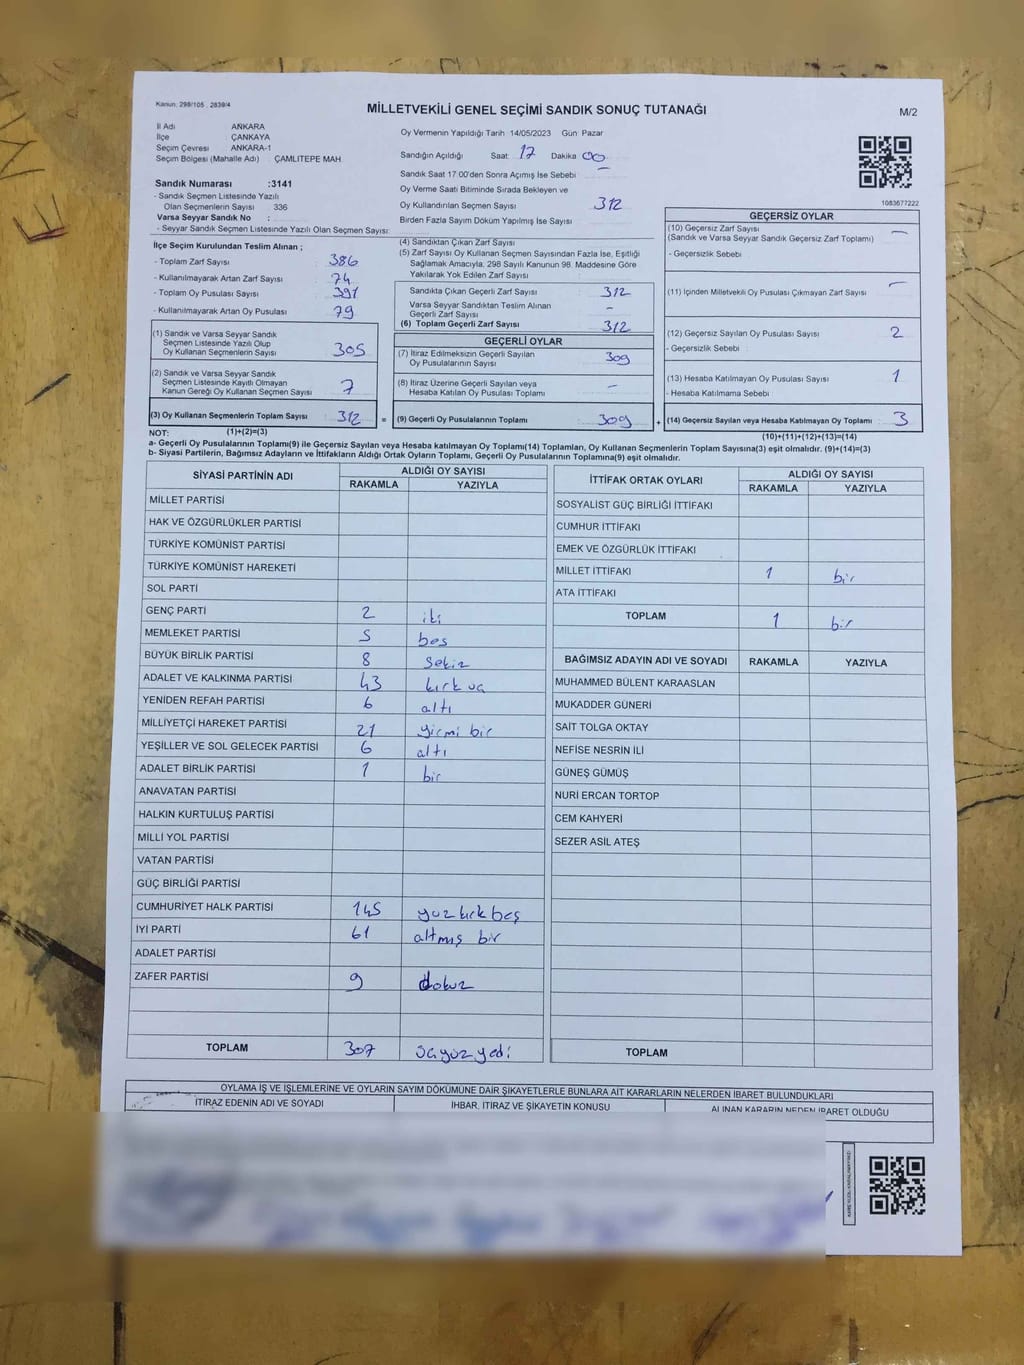 Kanun: 298/105 , 2839/4
MİLLETVEKİLİ GENEL SEÇİMİ SANDIK SONUÇ TUTANAĞI
M/2
İl Adı ANKARA
İlçe ÇANKAYA
Seçim Çevresi ANKARA-1
Seçim Bölgesi (Mahalle Adı) ÇAMLITEPE MAH
Sandık Numarası :3141
- Sandık Seçmen Listesinde Yazılı
Olan Seçmenlerin Sayısı 336
Varsa Seyyar Sandık No :
- Seyyar Sandık Seçmen Listesinde Yazılı Olan Seçmen Sayısı:
Oy Vermenin Yapıldığı Tarih 14/05/2023 Gün Pazar
Sandığın Açıldığı Saat: 17 Dakika 00
Sandık Saat 17:00'den Sonra Açımış İse Sebebi –
Oy Verme Saati Bitiminde Sırada Bekleyen ve
Oy Kullandırılan Seçmen Sayısı 312
Birden Fazla Sayım Döküm Yapılmış İse Sayısı
1083677222
İlçe Seçim Kurulundan Teslim Alınan ;
- Toplam Zarf Sayısı 386
- Kullanılmayarak Artan Zarf Sayısı 74
- Toplam Oy Pusulası Sayısı 391
- Kullanılmayarak Artan Oy Pusulası 79
(1) Sandık ve Varsa Seyyar Sandık
Seçmen Listesinde Yazılı Olup
Oy Kullanan Seçmenlerin Sayısı 305
(2) Sandık ve Varsa Seyyar Sandık
Seçmen Listesinde Kayıtlı Olmayan
Kanun Gereği Oy Kullanan Seçmen Sayısı 7
(3) Oy Kullanan Seçmenlerin Toplam Sayısı 312 =
(4) Sandıktan Çıkan Zarf Sayısı
(5) Zarf Sayısı Oy Kullanan Seçmen Sayısından Fazla İse, Eşitliği
Sağlamak Amacıyla, 298 Sayılı Kanunun 98. Maddesine Göre
Yakılarak Yok Edilen Zarf Sayısı
Sandıkta Çıkan Geçerli Zarf Sayısı 312
Varsa Seyyar Sandıktan Teslim Alınan
Geçerli Zarf Sayısı –
(6) Toplam Geçerli Zarf Sayısı 312
GEÇERLİ OYLAR
(7) İtiraz Edilmeksizin Geçerli Sayılan
Oy Pusulalarının Sayısı 309
(8) İtiraz Üzerine Geçerli Sayılan veya
Hesaba Katılan Oy Pusulası Toplamı –
(9) Geçerli Oy Pusulalarının Toplamı 309 +
GEÇERSİZ OYLAR
(10) Geçersiz Zarf Sayısı –
(Sandık ve Varsa Seyyar Sandık Geçersiz Zarf Toplamı)
- Geçersizlik Sebebi
(11) İçinden Milletvekili Oy Pusulası Çıkmayan Zarf Sayısı –
(12) Geçersiz Sayılan Oy Pusulası Sayısı 2
- Geçersizlik Sebebi
(13) Hesaba Katılmayan Oy Pusulası Sayısı 1
- Hesaba Katılmama Sebebi
(14) Geçersiz Sayılan veya Hesaba Katılmayan Oy Toplamı 3
NOT: (1)+(2)=(3) (10)+(11)+(12)+(13)=(14)
a- Geçerli Oy Pusulalarının Toplamı(9) ile Geçersiz Sayılan veya Hesaba katılmayan Oy Toplamı(14) Toplamları, Oy Kullanan Seçmenlerin Toplam Sayısına(3) eşit olmalıdır. (9)+(14)=(3)
b- Siyasi Partilerin, Bağımsız Adayların ve İttifakların Aldığı Ortak Oyların Toplamı, Geçerli Oy Pusulalarının Toplamına(9) eşit olmalıdır.
SİYASİ PARTİNİN ADI ALDIĞI OY SAYISI
RAKAMLA YAZIYLA
MİLLET PARTİSİ
HAK VE ÖZGÜRLÜKLER PARTİSİ
TÜRKİYE KOMÜNİST PARTİSİ
TÜRKİYE KOMÜNİST HAREKETİ
SOL PARTİ
GENÇ PARTİ 2 iki
MEMLEKET PARTİSİ 5 beş
BÜYÜK BİRLİK PARTİSİ 8 sekiz
ADALET VE KALKINMA PARTİSİ 43 kırk üç
YENİDEN REFAH PARTİSİ 6 altı
MİLLİYETÇİ HAREKET PARTİSİ 21 yirmi bir
YEŞİLLER VE SOL GELECEK PARTİSİ 6 altı
ADALET BİRLİK PARTİSİ 1 bir
ANAVATAN PARTİSİ
HALKIN KURTULUŞ PARTİSİ
MİLLİ YOL PARTİSİ
VATAN PARTİSİ
GÜÇ BİRLİĞİ PARTİSİ
CUMHURİYET HALK PARTİSİ 145 yüz kırk beş
İYİ PARTİ 61 altmış bir
ADALET PARTİSİ
ZAFER PARTİSİ 9 dokuz
TOPLAM 307 üçyüz yedi
İTTİFAK ORTAK OYLARI ALDIĞI OY SAYISI
RAKAMLA YAZIYLA
SOSYALİST GÜÇ BİRLİĞİ İTTİFAKI
CUMHUR İTTİFAKI
EMEK VE ÖZGÜRLÜK İTTİFAKI
MİLLET İTTİFAKI 1 bir
ATA İTTİFAKI
TOPLAM 1 bir
BAĞIMSIZ ADAYIN ADI VE SOYADI RAKAMLA YAZIYLA
MUHAMMED BÜLENT KARAASLAN
MUKADDER GÜNERİ
SAİT TOLGA OKTAY
NEFİSE NESRİN İLİ
GÜNEŞ GÜMÜŞ
NURİ ERCAN TORTOP
CEM KAHYERİ
SEZER ASİL ATEŞ
TOPLAM
OYLAMA İŞ VE İŞLEMLERİNE VE OYLARIN SAYIM DÖKÜMÜNE DAİR ŞİKAYETLERLE BUNLARA AİT KARARLARIN NELERDEN İBARET BULUNDUKLARI
İTİRAZ EDENİN ADI VE SOYADI İHBAR, İTİRAZ VE ŞİKAYETİN KONUSU ALINAN KARARIN NEDEN İBARET OLDUĞU